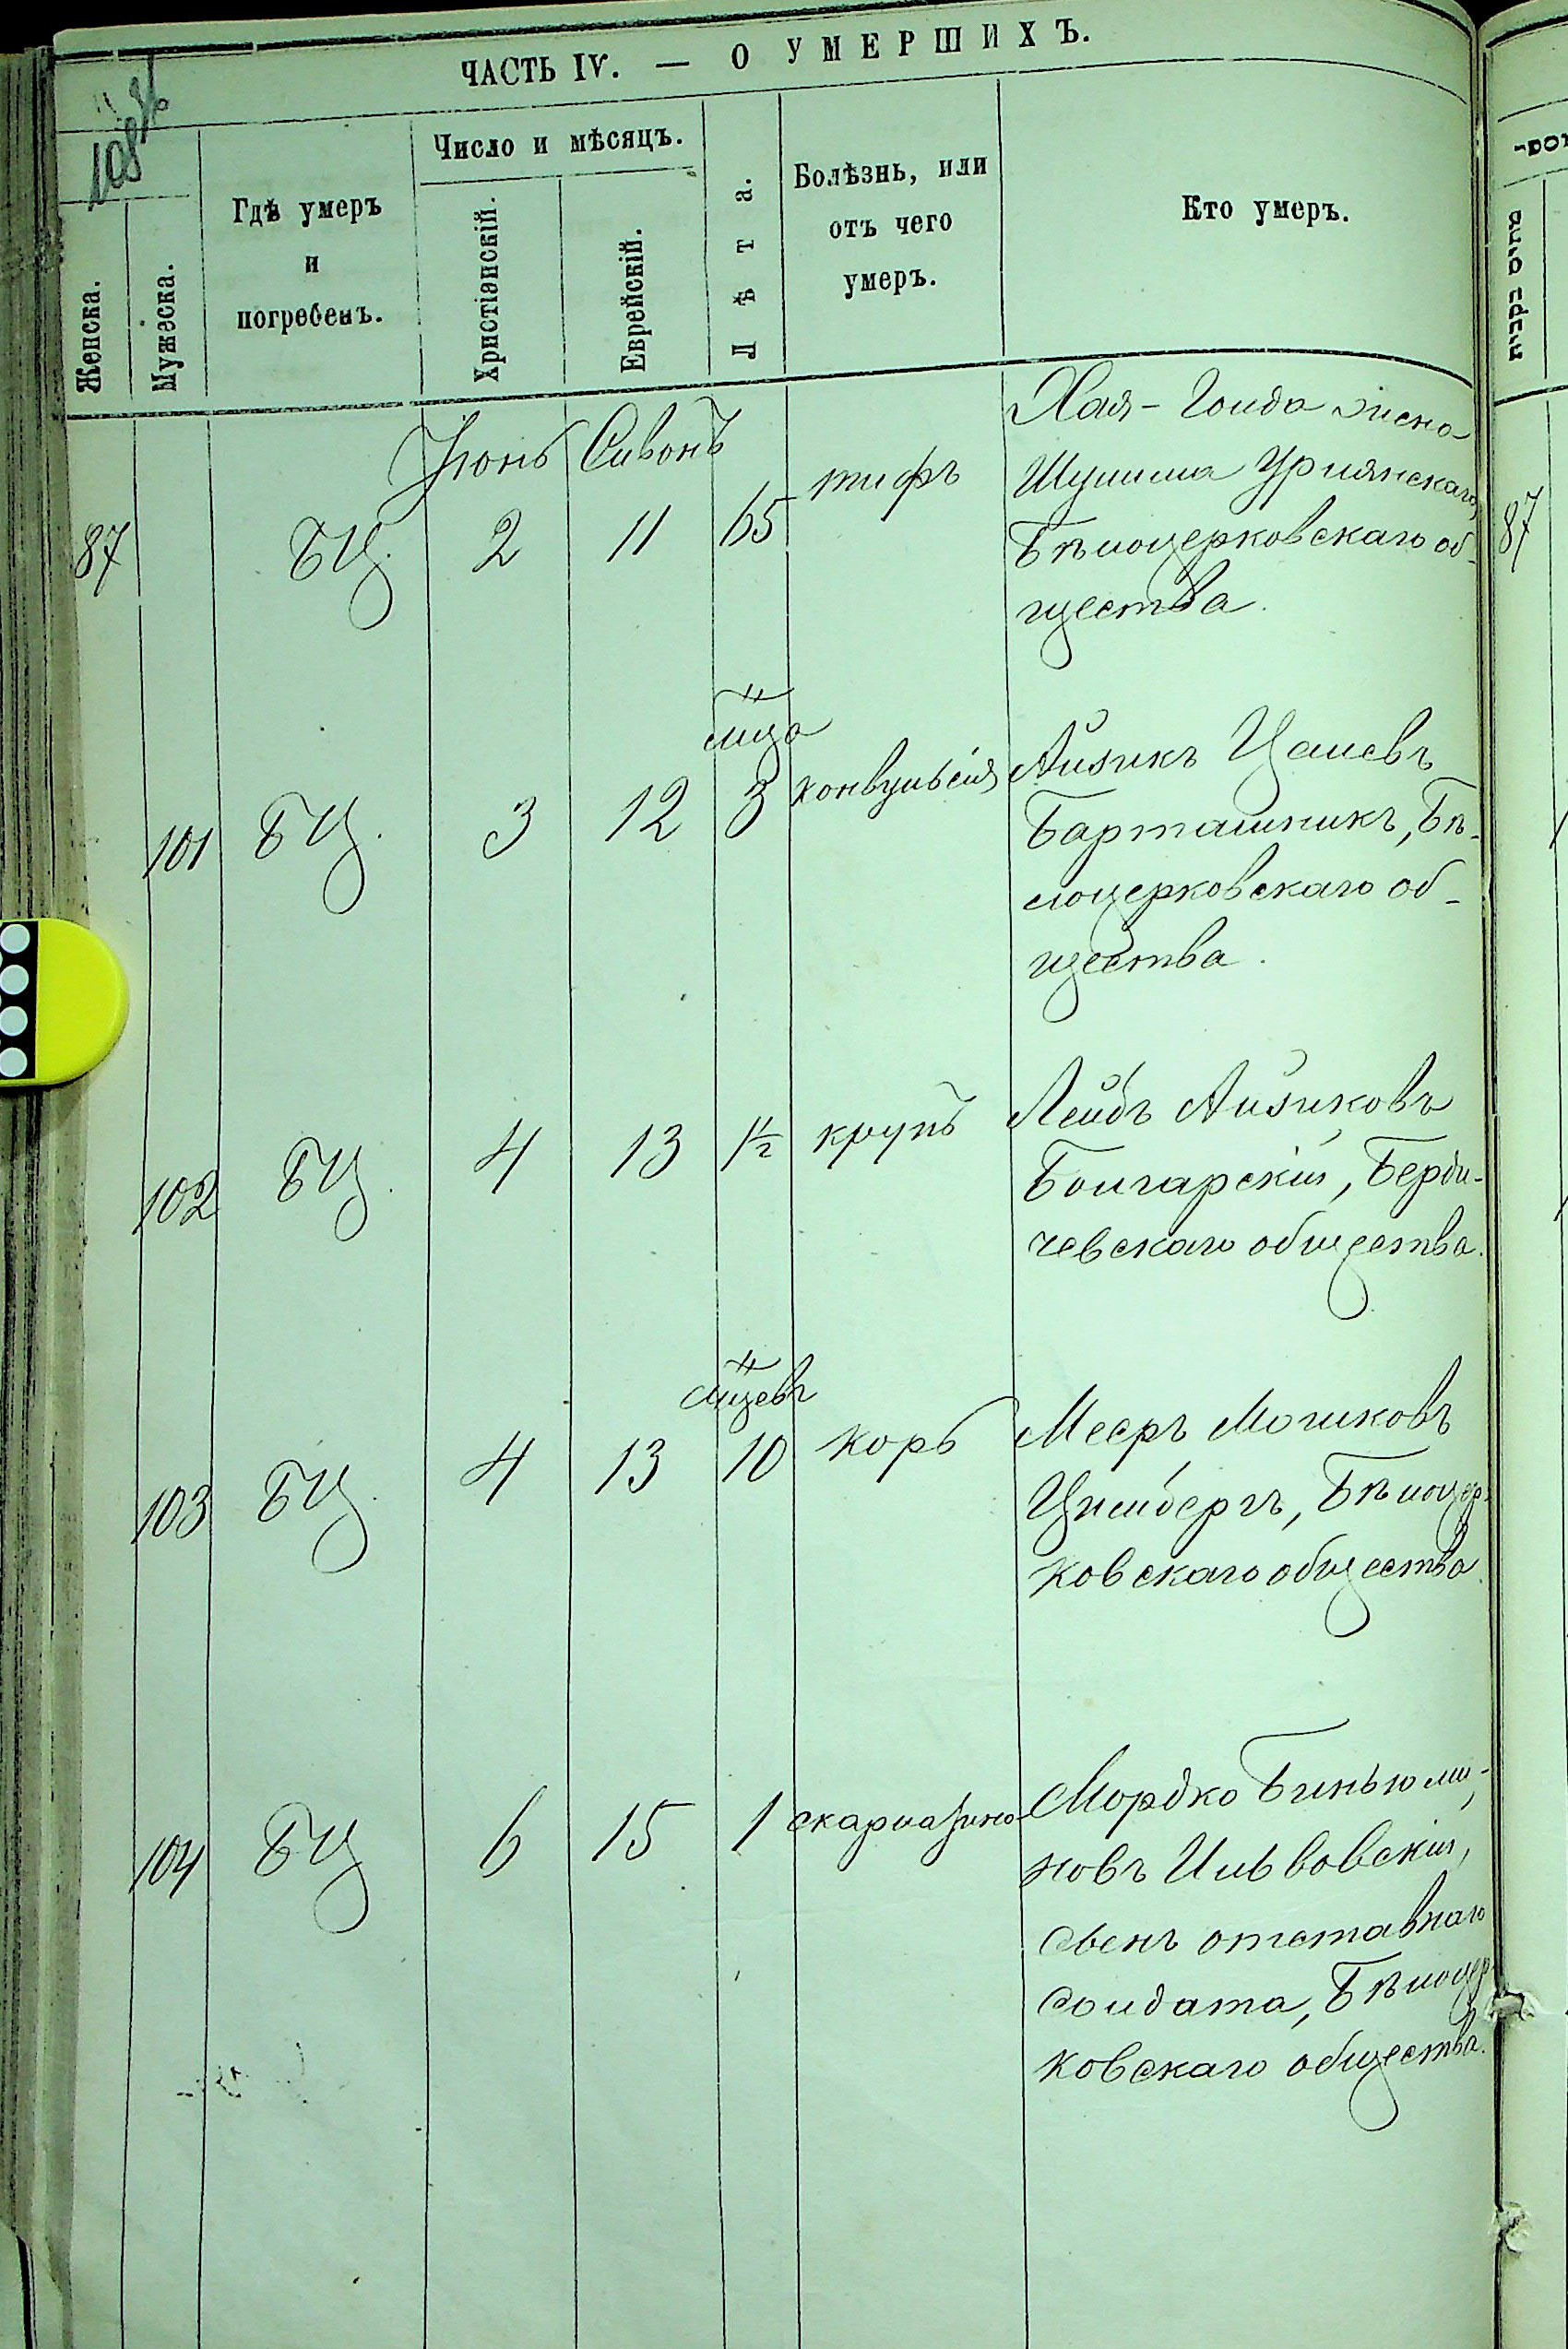 ЧАСТЬ IV. — О УМЕРШИХЪ.
108
Женска.
Мужеска.
Гдѣ умеръ
и
погребенъ.
Число и мѣсяцъ.
Христіанскій.
Еврейскій.
Лѣта.
Болѣзнь, или
отъ чего
умеръ.
Кто умеръ.
Іюнь Сивонъ
87 БЦ. 2 11 65 тифъ
Хая-Голда жена
Шулима
Бѣлоцерковскаго об-
щества.
101 БЦ. 3 12 мца 3 конвульсія
Айзикъ
Барташникъ, Бѣ-
лоцерковскаго об-
щества.
102 БЦ. 4 13 1½ крупъ
Лейбъ Айзиковъ
Болгарскій, Берди-
чевскаго общества.
103 БЦ. 4 13 мцевъ 10 корь
Мееръ Мошковъ
Бѣлоцер-
ковскаго общества
104 БЦ 6 15 1 скарлатина
Мордко Биньюми-
новъ Ильвовскій,
сынъ отставнаго
солдата, Бѣлоцер-
ковскаго общества.
87